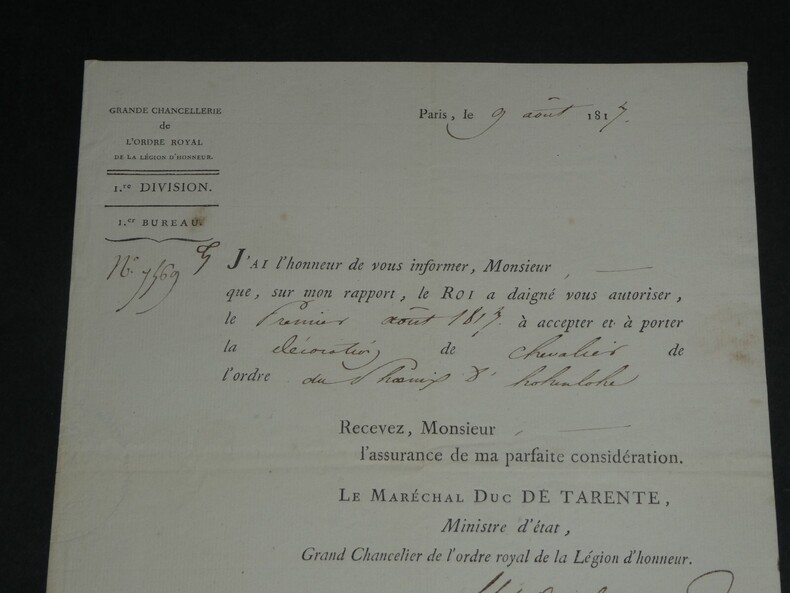 GRANDE CHANCELLERIE
de
L'ORDRE ROYAL
DE LA LÉGION D'HONNEUR.
1.re DIVISION.
1.er BUREAU.
Paris, le 9 août 1817.
J'AI l'honneur de vous informer, Monsieur
que, sur mon rapport, le ROI a daigné vous autoriser,
le Premier août 1817 à accepter et à porter
la décoration de chevalier de
l'ordre du Phœnix d'hohenlohe
Recevez, Monsieur
l'assurance de ma parfaite considération.
LE MARÉCHAL DUC DE TARENTE,
Ministre d'état,
Grand Chancelier de l'ordre royal de la Légion d'honneur.